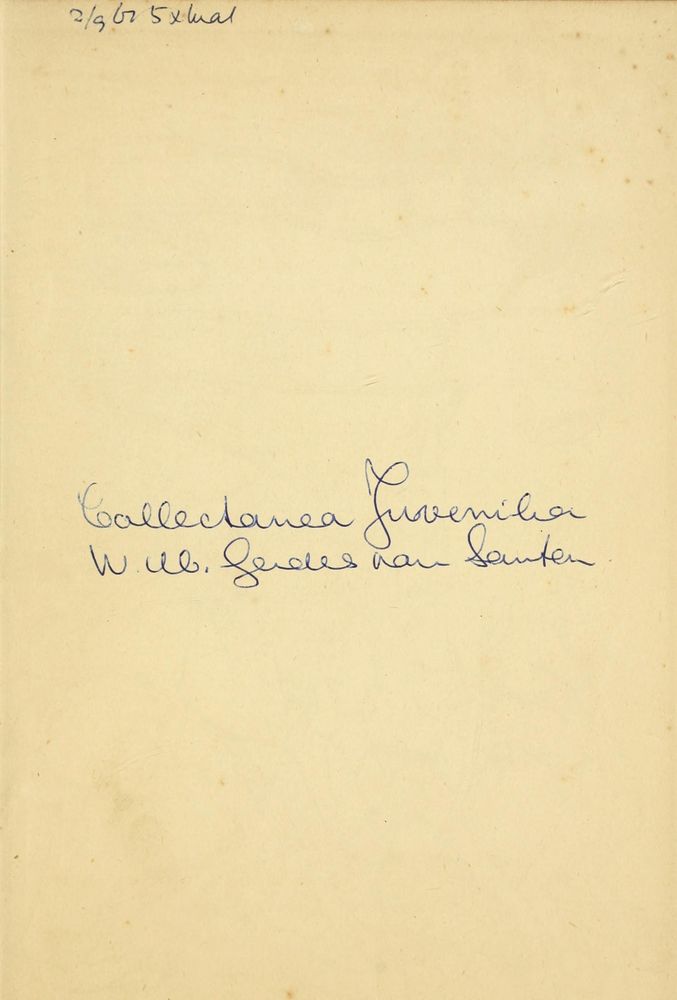 Collectanea Juvenilia
W. M. Gerdes van Santen